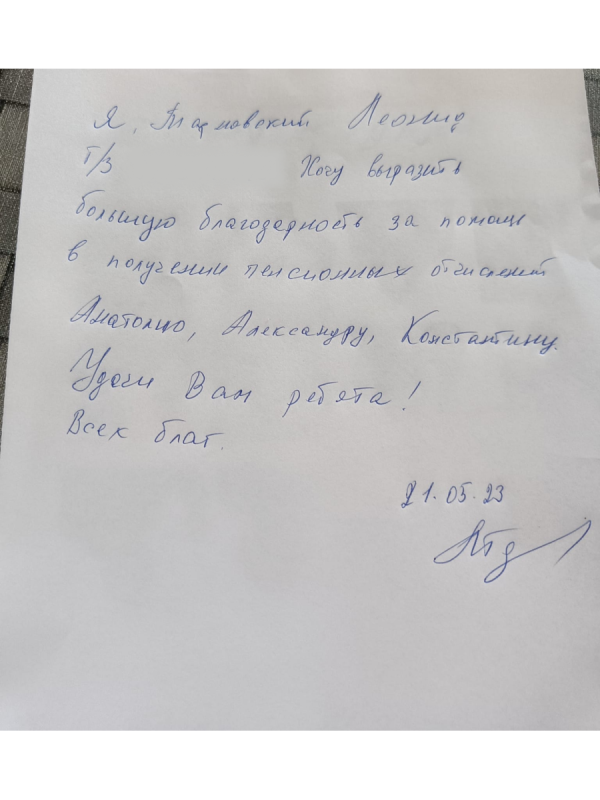 Я, Тарновский Леонид
Т/З Хочу выразить
большую благодарность за помощь
в получении пенсионных отчислений
Анатолию, Александру, Константину.
Удачи Вам ребята!
Всех благ.
21.05.23